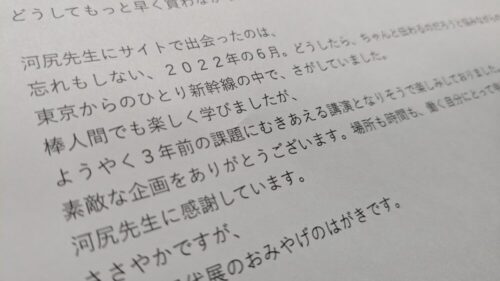 どうしてもっと早く買わなか
河尻先生にサイトで出会ったのは、
忘れもしない、2022年の6月。どうしたら、ちゃんと伝わるのだろうと悩みながら
東京からのひとり新幹線の中で、さがしていました。
棒人間でも楽しく学びましたが、
ようやく3年前の課題にむきあえる講演となりそうで楽しみしておりました。
素敵な企画をありがとうございます。場所も時間も、働く自分にとって
河尻先生に感謝しています。
ささやかですが、
代展のおみやげのはがきです。